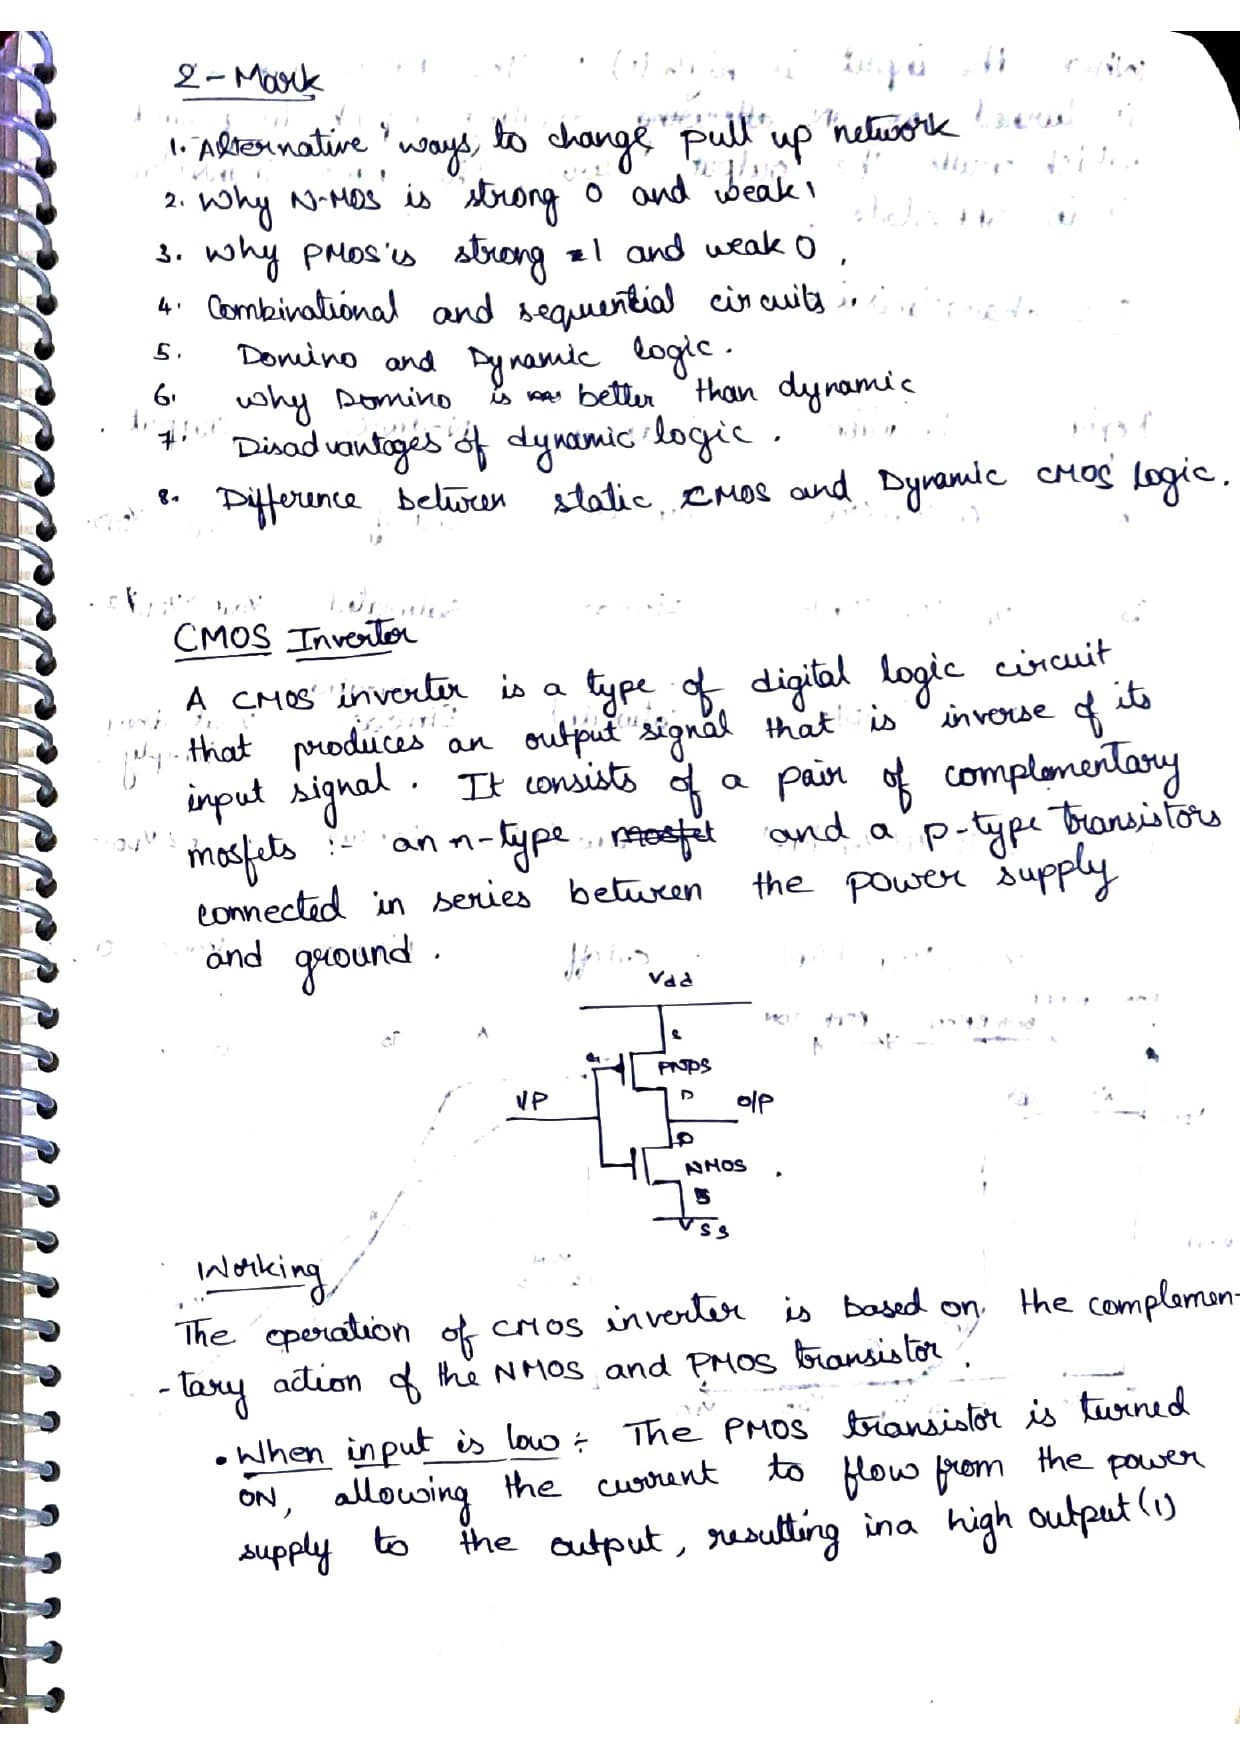 2-Mark
1. Alternative ways to change pull up network
2. Why N-MOS is strong 0 and weak 1
3. Why PMOS is strong 1 and weak 0.
4. Combinational and sequential circuits.
5. Domino and Dynamic logic.
6. why Domino is better than dynamic
7. Disadvantages of dynamic logic.
8. Difference between static CMOS and Dynamic CMOS Logic.
CMOS Invertor
A CMOS inverter is a type of digital logic circuit
that produces an output signal that is inverse of its
input signal. It consists of a pair of complementary
mosfets :- an n-type mosfet and a p-type transistors
connected in series between the power supply
and ground.
Vdd
S
PMOS
I/P
D
O/P
D
NMOS
S
Vss
Working
The operation of CMOS inverter is based on the complemen-
-tary action of the NMOS and PMOS transistor.
• When input is low :- The PMOS transistor is turned
ON, allowing the current to flow from the power
supply to the output, resulting in a high output (1)